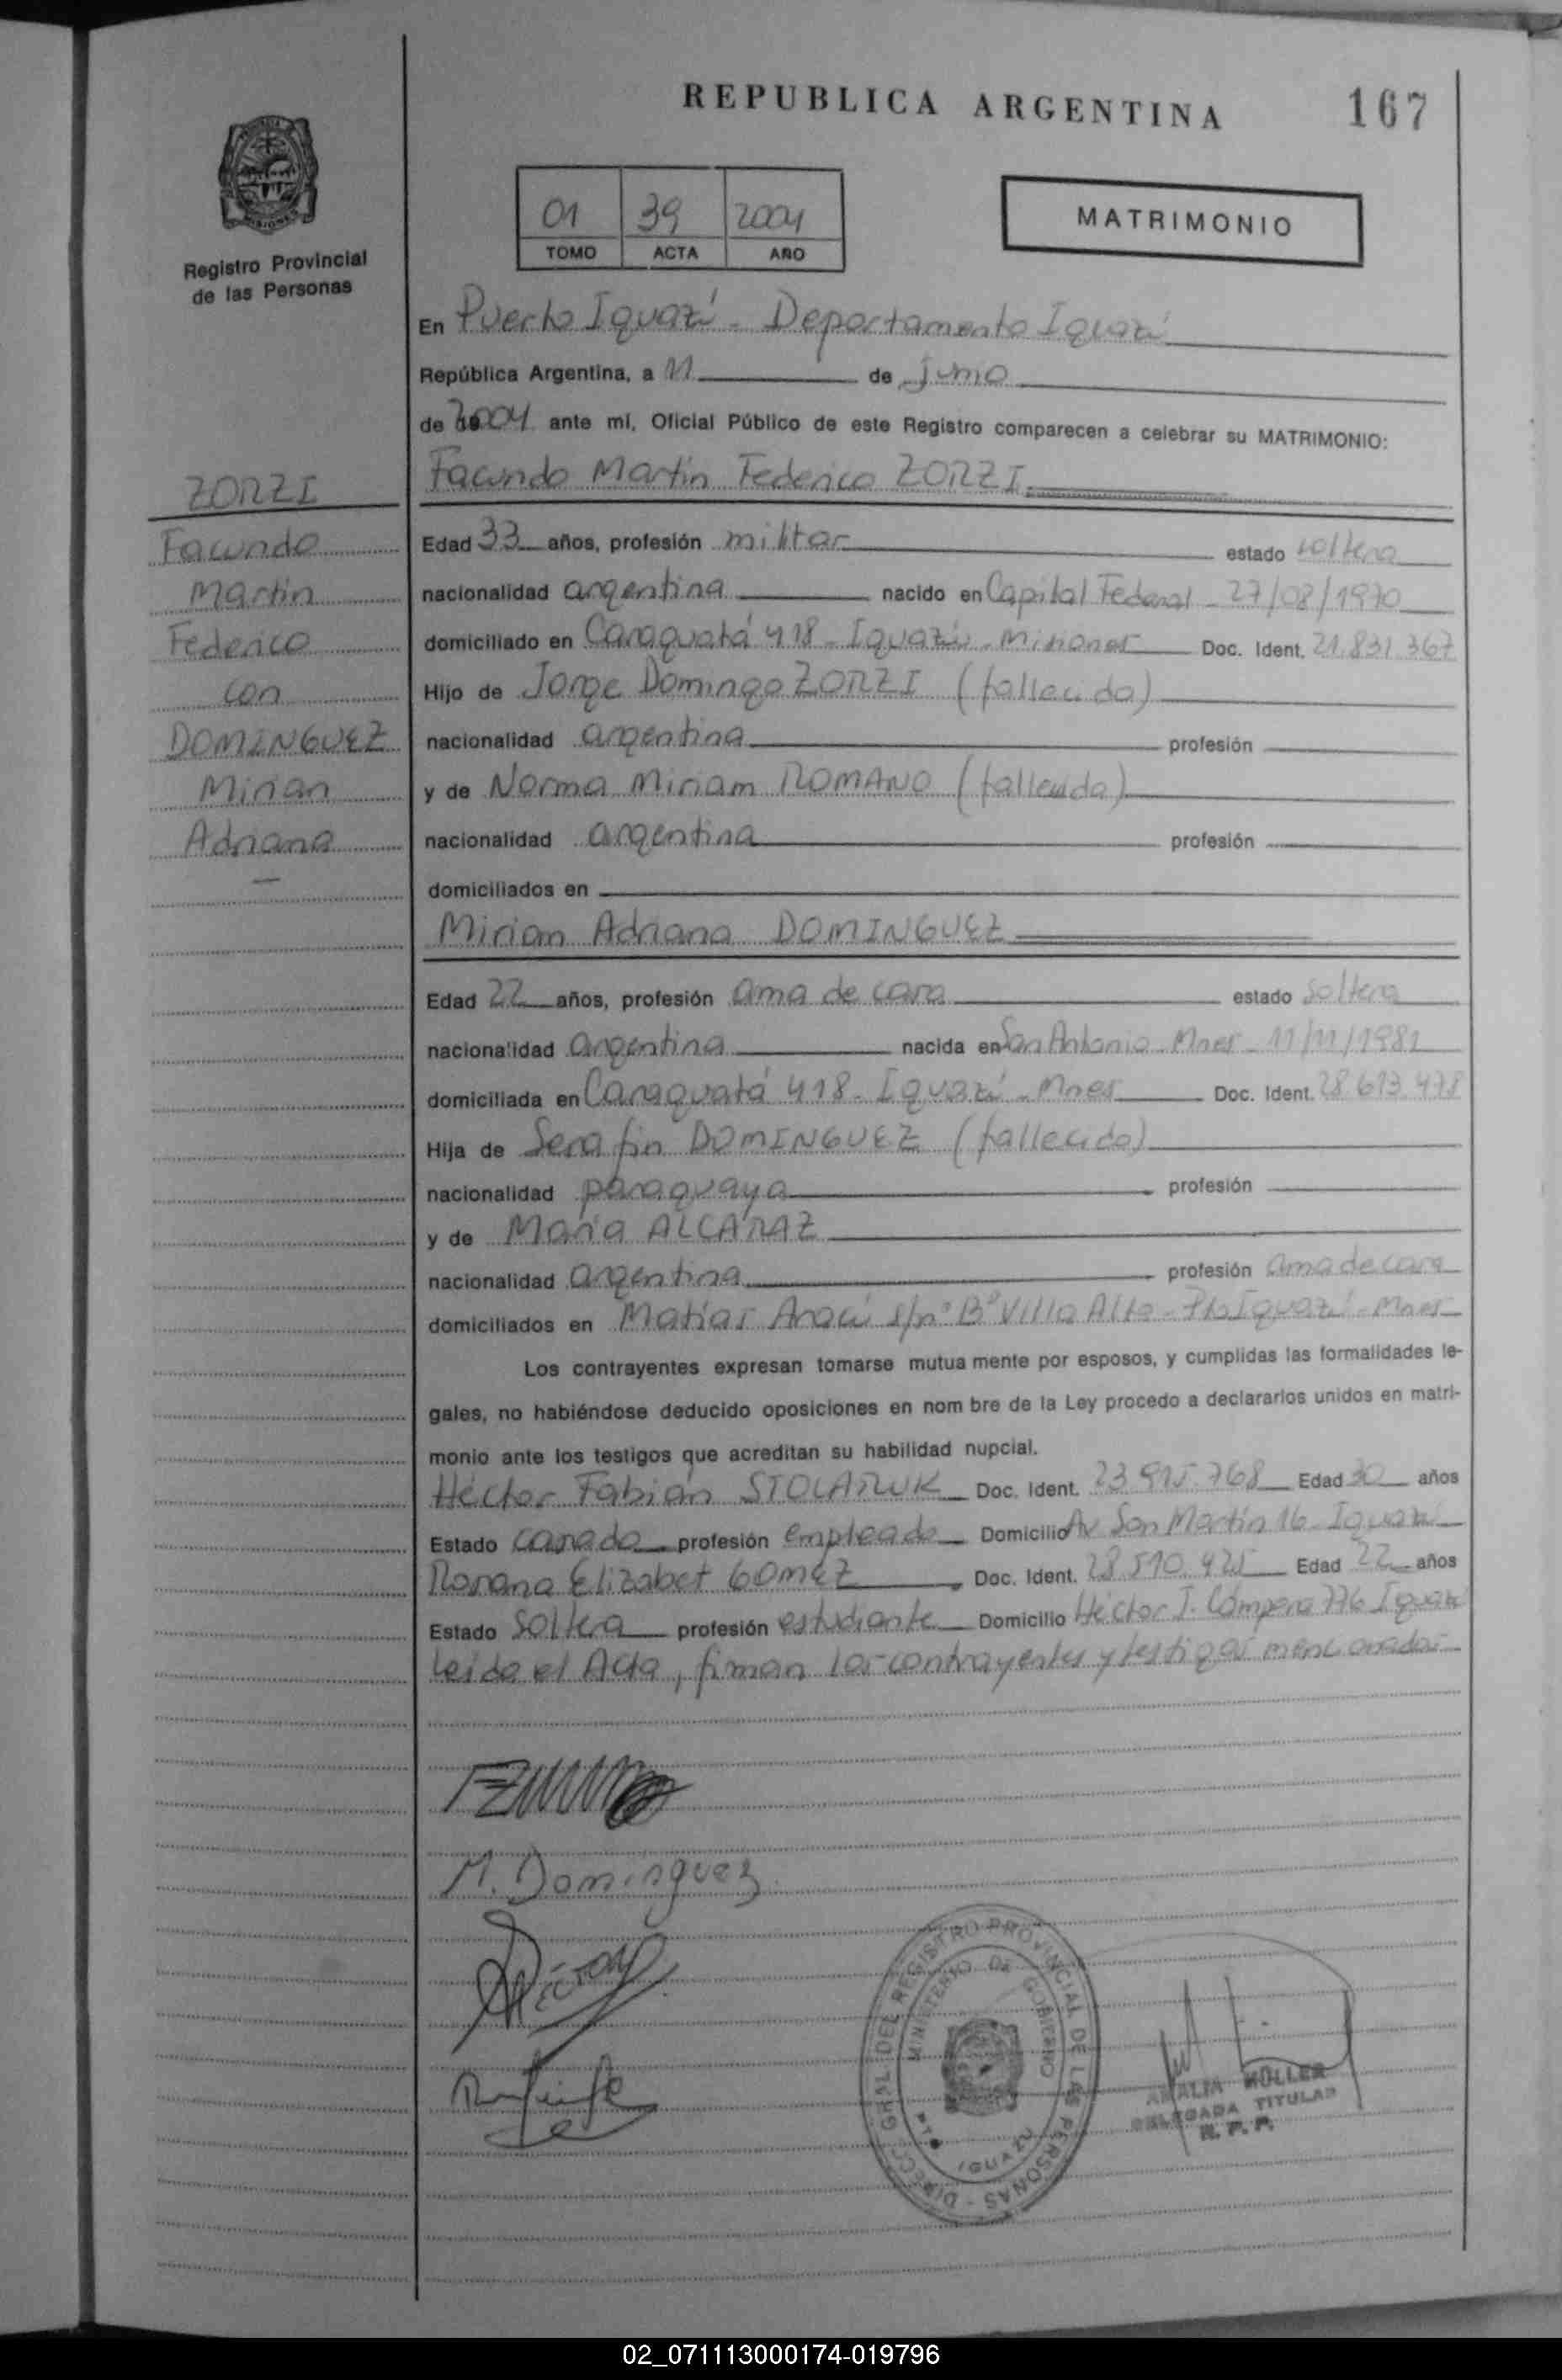 REPUBLICA ARGENTINA
167
01 39 2004
TOMO ACTA AÑO
MATRIMONIO
Registro Provincial
de las Personas
En Puerto Iguazú - Departamento Iguazú
República Argentina, a 11 de junio
de 2004 ante mí, Oficial Público de este Registro comparecen a celebrar su MATRIMONIO:
Facundo Martín Federico ZORZI
ZORZI
Facundo
Martín
Federico
con
DOMINGUEZ
Mirian
Adriana
Edad 33 años, profesión militar estado soltero
nacionalidad argentina nacido en Capital Federal - 27/08/1970
domiciliado en Caraguatá 418 - Iguazú - Misiones Doc. Ident. 21.831.367
Hijo de Jorge Domingo ZORZI (fallecido)
nacionalidad argentina profesión
y de Norma Miriam ROMANO (fallecida)
nacionalidad argentina profesión
domiciliados en
Mirian Adriana DOMINGUEZ
Edad 22 años, profesión ama de casa estado soltera
nacionalidad argentina nacida en San Antonio - Mnes - 11/11/1981
domiciliada en Caraguatá 418 - Iguazú - Mnes Doc. Ident. 28.613.478
Hija de Serafin DOMINGUEZ (fallecido)
nacionalidad paraguaya profesión
y de María ALCARAZ
nacionalidad argentina profesión ama de casa
domiciliados en Matías s/nº Bº Villa Alta - Pto Iguazú - Mnes
Los contrayentes expresan tomarse mutua mente por esposos, y cumplidas las formalidades le-
gales, no habiéndose deducido oposiciones en nom bre de la Ley procedo a declararlos unidos en matri-
monio ante los testigos que acreditan su habilidad nupcial.
Héctor Fabián STOLARUK Doc. Ident. 23.915.768 Edad 30 años
Estado casado profesión empleado Domicilio Av San Martín 16 - Iguazú
Rosana Elizabet GOMEZ Doc. Ident. 28.510.425 Edad 22 años
Estado soltera profesión estudiante Domicilio Héctor J. Cámpora 776 Iguazú
Leída el Acta, firman los contrayentes y testigos mencionados
M. Dominguez
DIRECC. GRAL. DEL REGISTRO PROVINCIAL DE LAS PERSONAS
MINISTERIO DE GOBIERNO
PTO IGUAZU
AMALIA MÜLLER
DELEGADA TITULAR
R. P. P.
02_071113000174-019796